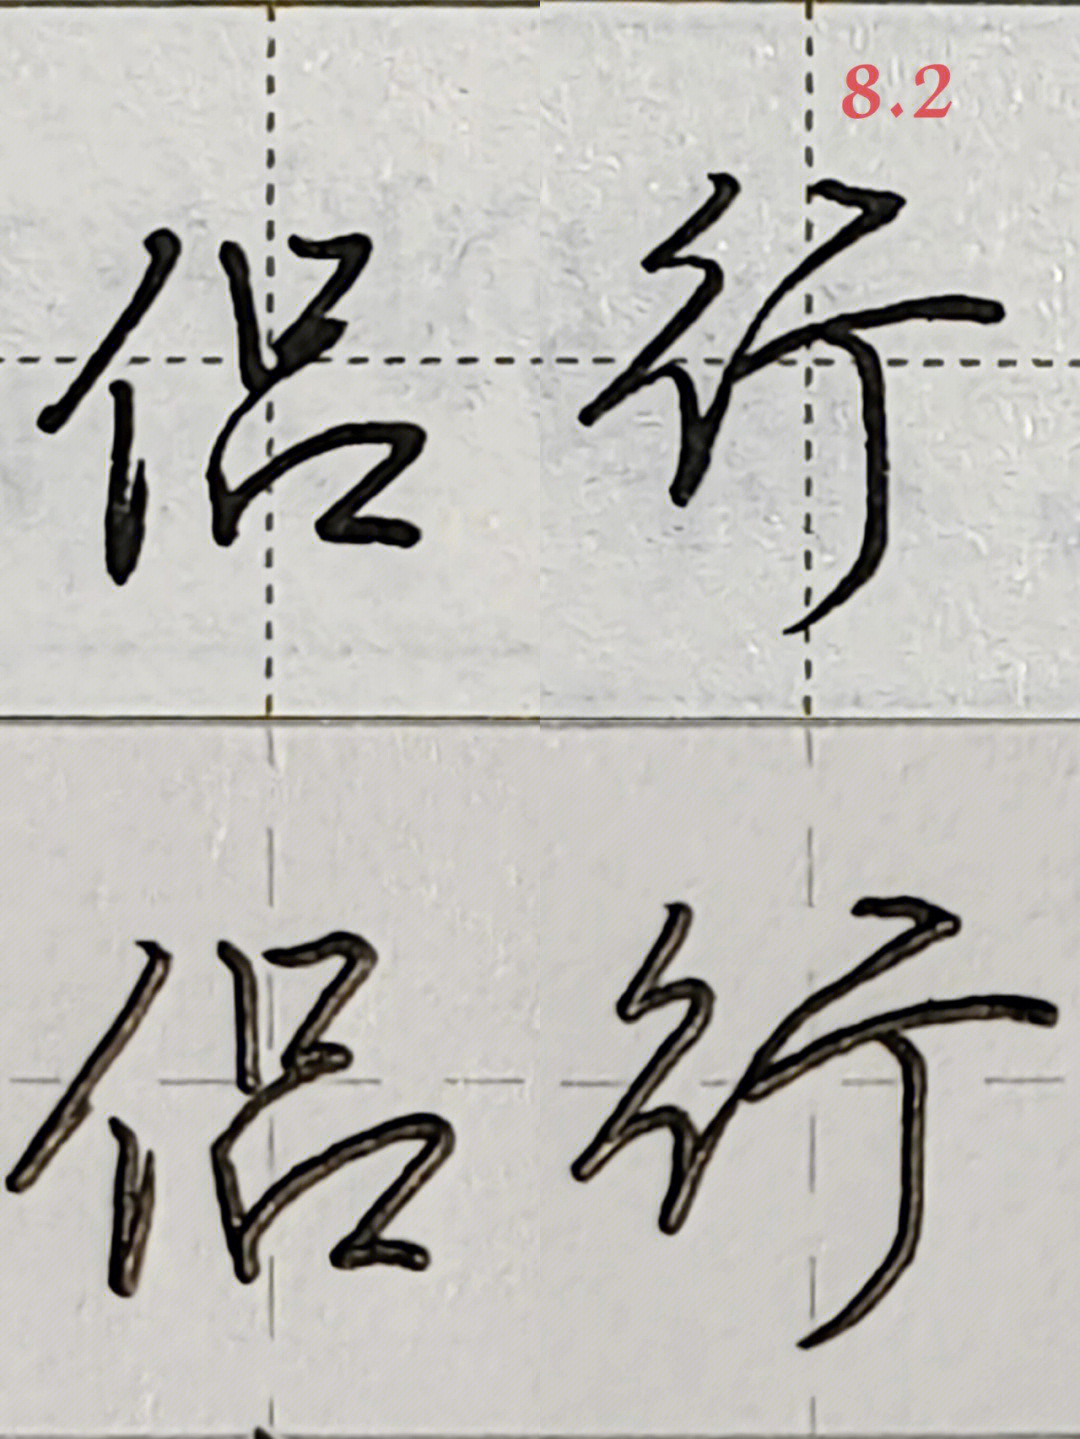 侣行
8.2
侣行